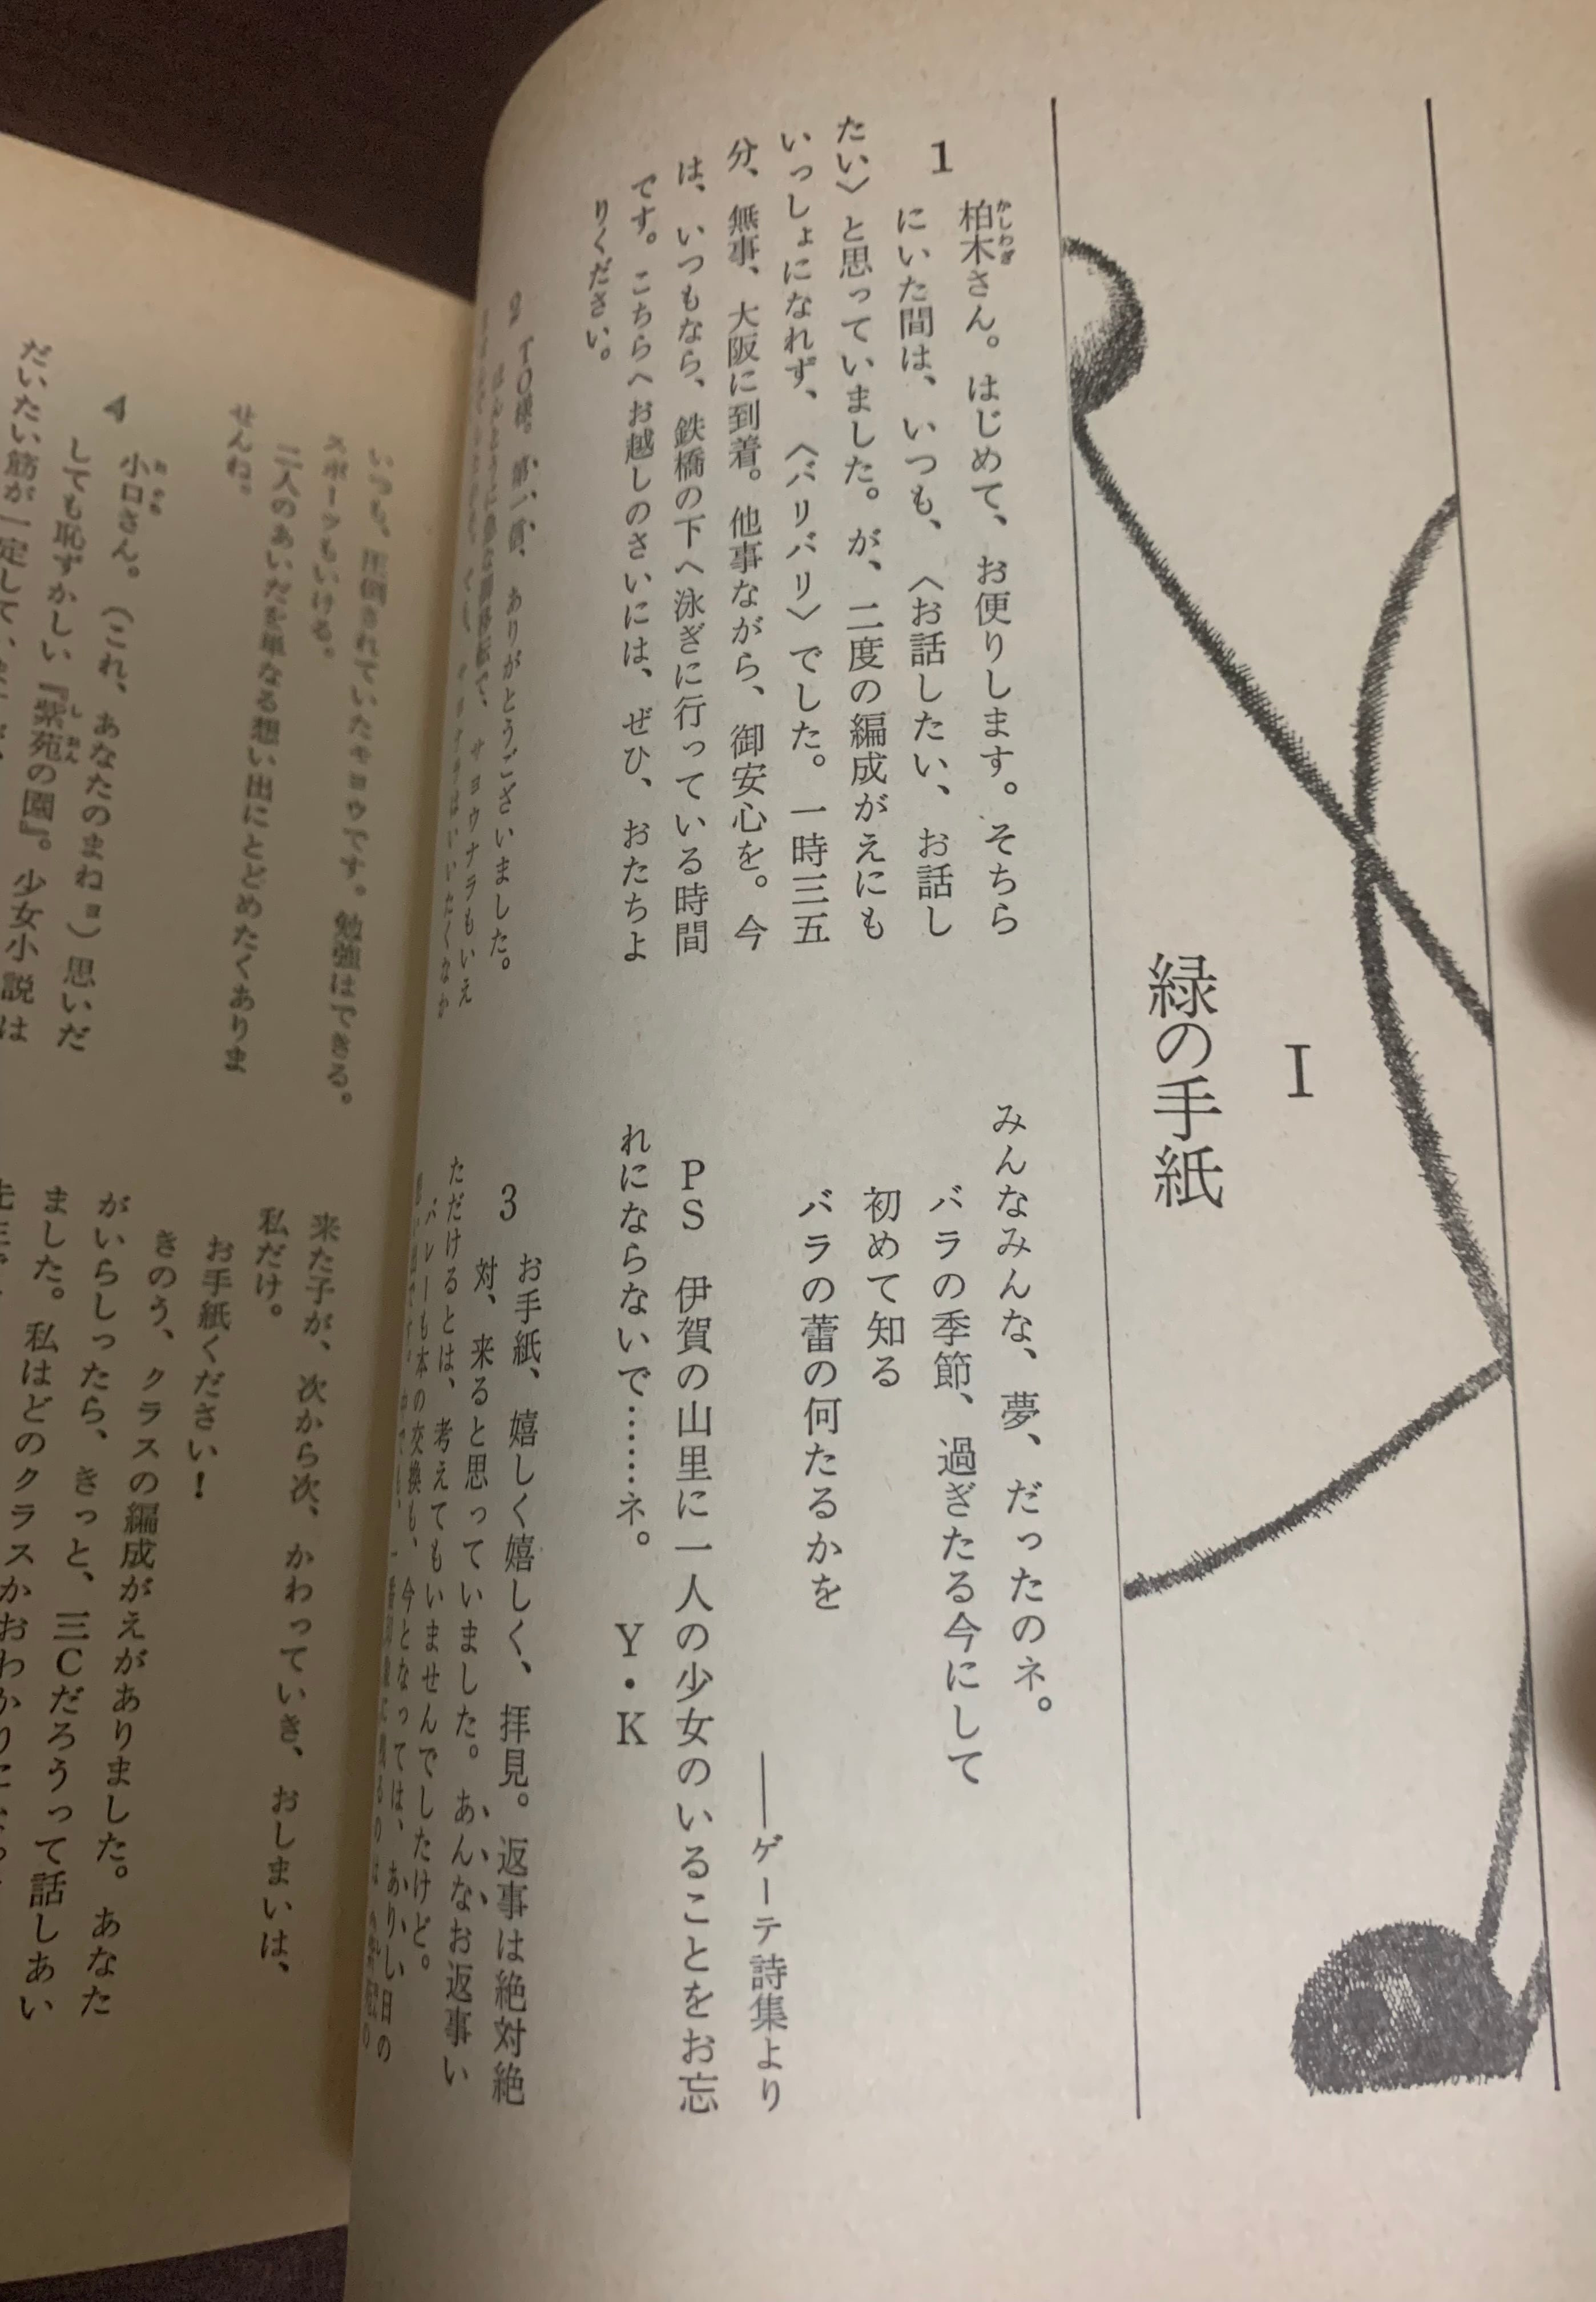 I
緑の手紙
1
柏木さん。はじめて、お便りします。そちら
かしわぎ
にいた間は、いつも、〈お話したい、お話し
たい〉と思っていました。が、二度の編成がえにも
いっしょになれず、〈バリバリ〉でした。一時三五
分、無事、大阪に到着。他事ながら、御安心を。今
は、いつもなら、鉄橋の下へ泳ぎに行っている時間
です。こちらへお越しのさいには、ぜひ、おたちよ
りください。
2
T・O様。第一信、ありがとうございました。
サヨウナラもいえ
サヨナラはいいたくなか
みんなみんな、夢、だったのネ。
バラの季節、過ぎたる今にして
初めて知る
バラの蕾の何たるかを
――ゲーテ詩集より
PS 伊賀の山里に一人の少女のいることをお忘
れにならないで……ネ。 Y・K
3
お手紙、嬉しく嬉しく、拝見。返事は絶対絶
対、来ると思っていました。あんなお返事い
ただけるとは、考えてもいませんでしたけど。
バレーも本の交換も、今となっては、ありし日の
いつも、圧倒されていたキョウです。勉強はできる。
スポーツもいける。
二人のあいだを単なる想い出にとどめたくありま
せんね。
4
小口さん。(これ、あなたのまねヨ)思いだ
おぐち
しても恥ずかしい『紫苑の園』。少女小説は
しおん
だいたい筋が一定して、
来た子が、次から次、かわっていき、おしまいは、
私だけ。
お手紙ください!
きのう、クラスの編成がえがありました。あなた
がいらしったら、きっと、三Cだろうって話しあい
ました。私はどのクラスかおわかりに